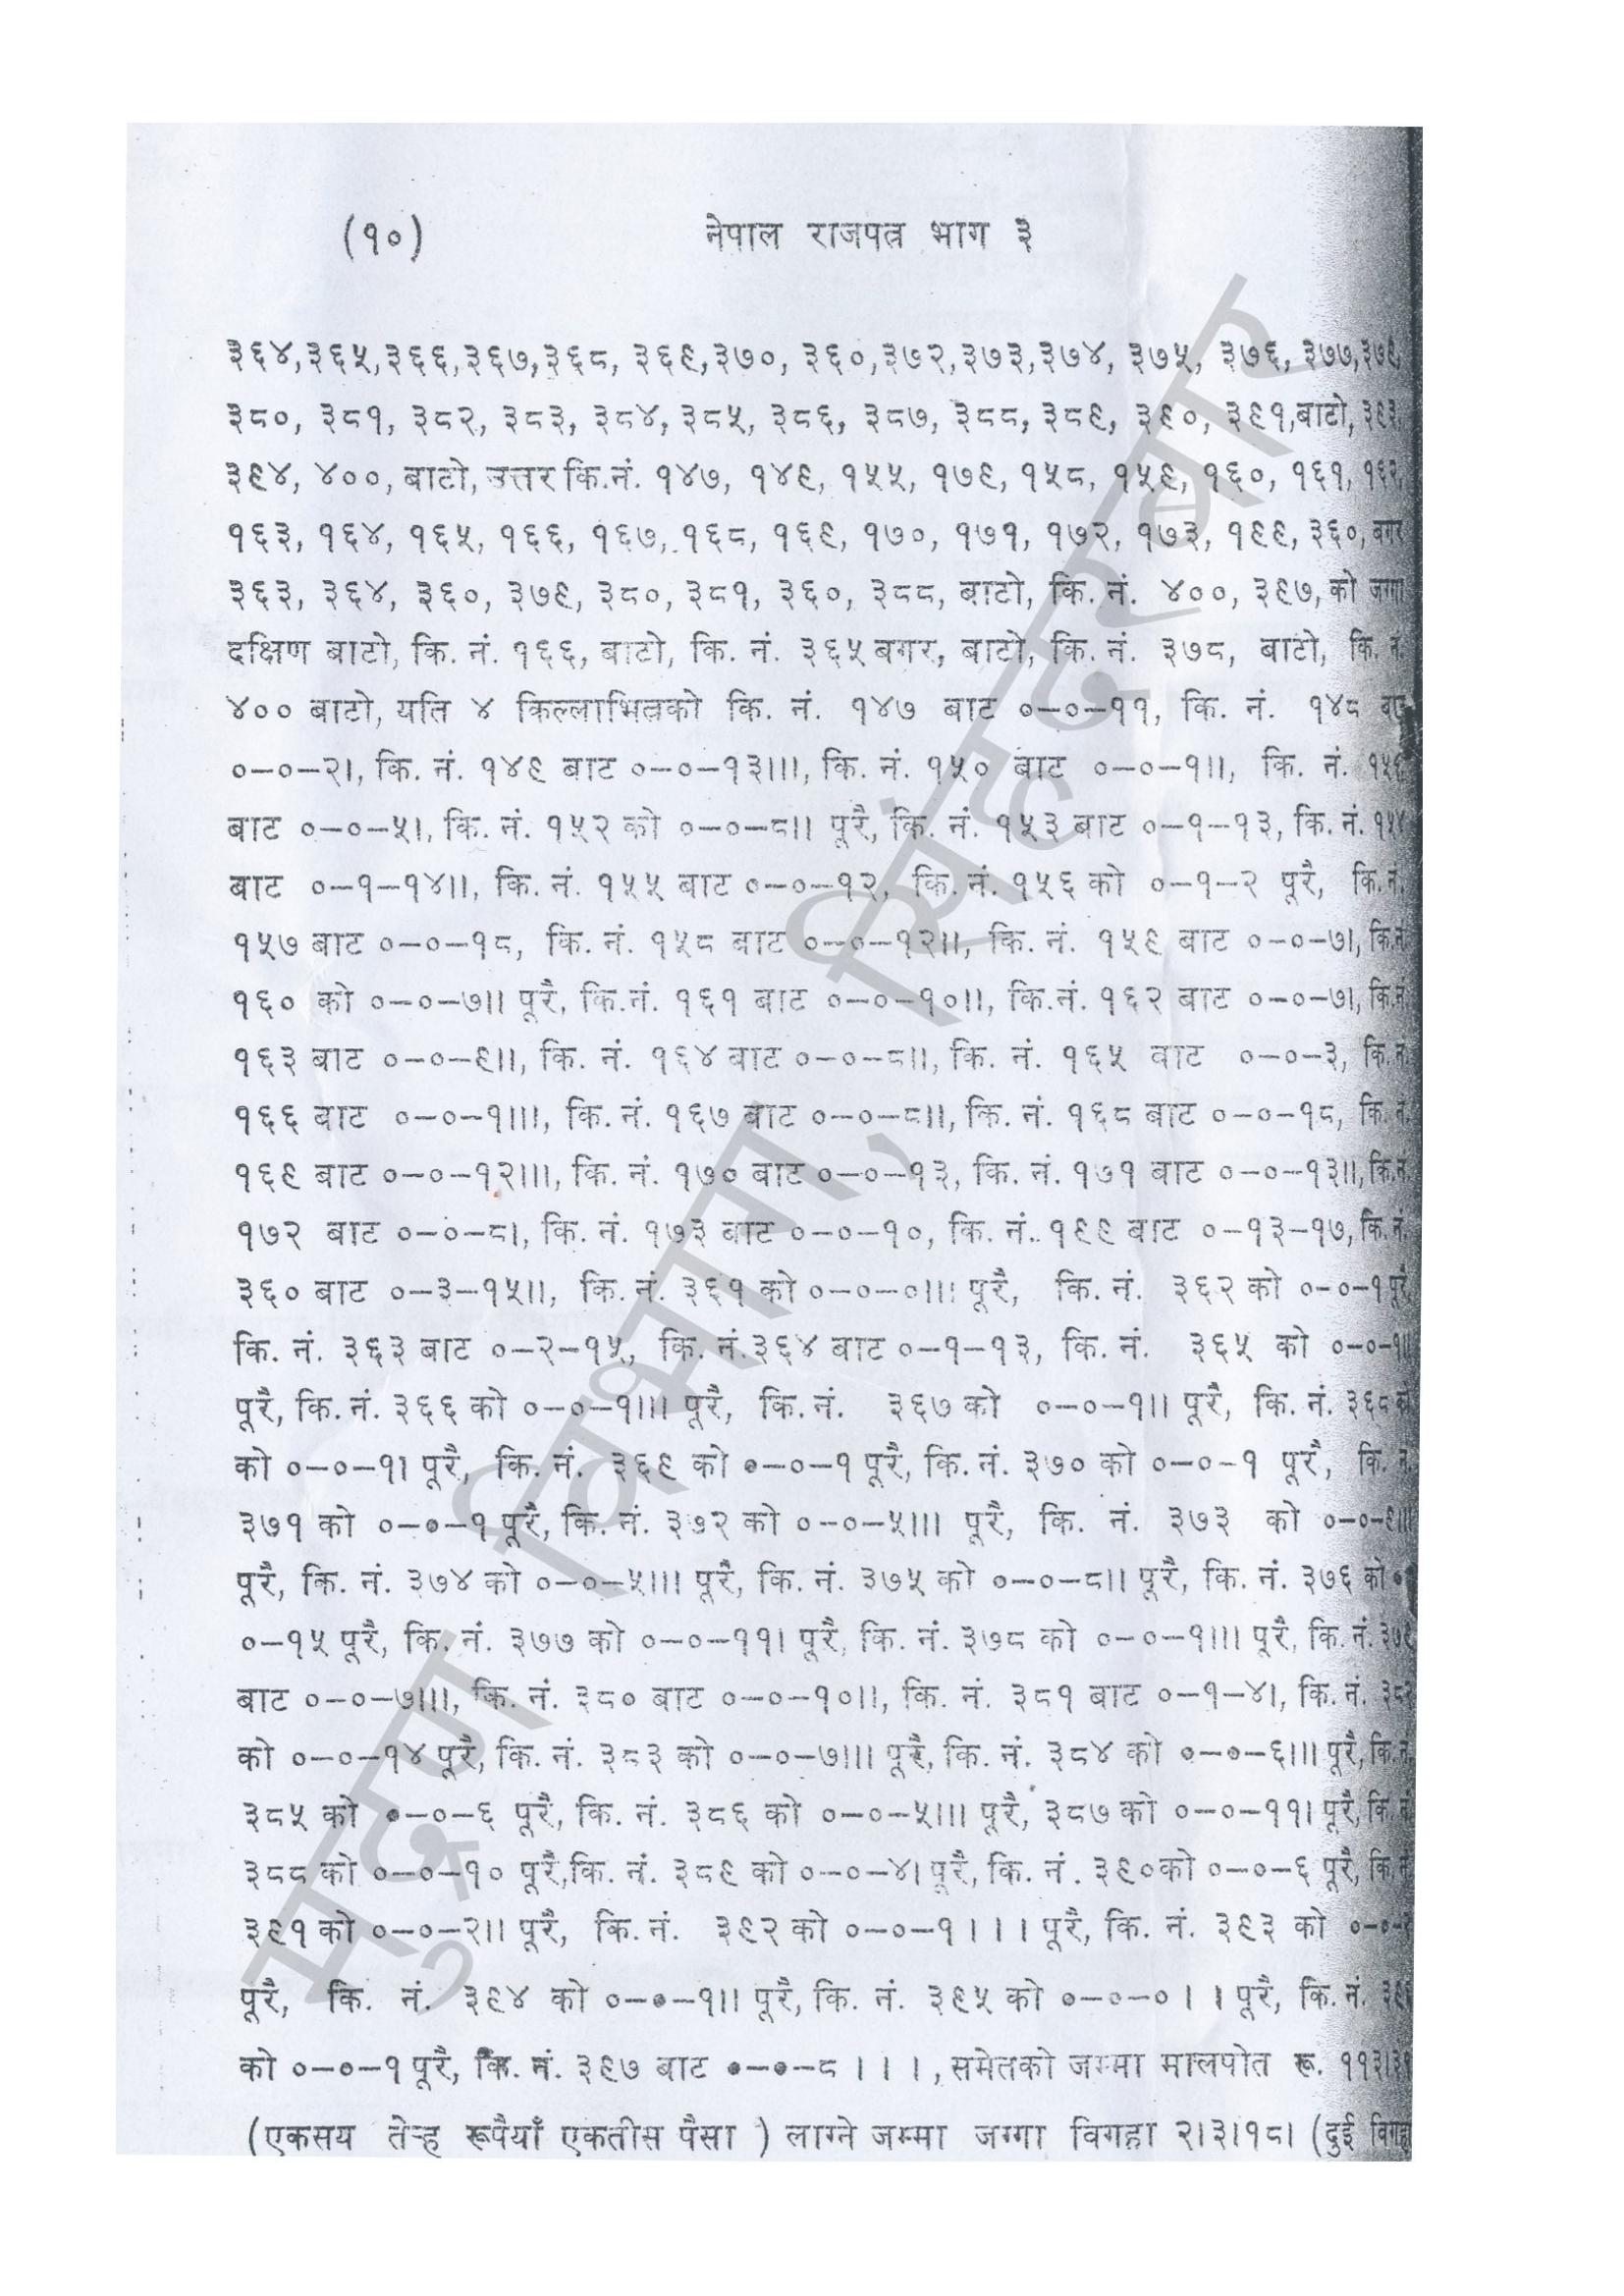 (१०) नेपाल राजपत्र भाग ३
३६४,३६५,३६६,३६७,३६८, ३६९,३७०, ३६०,३७२,३७३,३७४, ३७५, ३७६, ३७७,३७९,
३८०, ३८१, ३८२, ३८३, ३८४, ३८५, ३८६, ३८७, ३८८, ३८९, ३९०, ३९१,बाटो, ३९३,
३९४, ४००, बाटो, उत्तर कि.नं. १४७, १४९, १५५, १७९, १५८, १५९, १६०, १६१, १६२,
१६३, १६४, १६५, १६६, १६७, १६८, १६९, १७०, १७१, १७२, १७३, १९९, ३६०, बगर
३६३, ३६४, ३६०, ३७९, ३८०, ३८१, ३६०, ३८८, बाटो, कि. नं. ४००, ३९७, को जग्गा
दक्षिण बाटो, कि. नं. १६६, बाटो, कि. नं. ३६५ बगर, बाटो, कि. नं. ३७८, बाटो, कि. नं.
४०० बाटो, यति ४ किल्लाभित्रको कि. नं. १४७ बाट ०–०–११, कि. नं. १४८
०–०–२।, कि. नं. १४९ बाट ०–०–१३।।।, कि. नं. १५० बाट ०–०–१।।, कि. नं.
बाट ०–०–५।, कि. नं. १५२ को ०–०–८।। पूरै, कि. नं. १५३ बाट ०–१–१३, कि. नं. १५४
बाट ०–१–१४।।, कि. नं. १५५ बाट ०–०–१२, कि. नं. १५६ को ०–१–२ पूरै, कि. नं.
१५७ बाट ०–०–१८, कि. नं. १५८ बाट ०–०–१२।।, कि. नं. १५९ बाट ०–०–७।, कि.नं.
१६० को ०–०–७।। पूरै, कि.नं. १६१ बाट ०–०–१०।।, कि.नं. १६२ बाट ०–०–७।, कि.नं.
१६३ बाट ०–०–९।।, कि. नं. १६४ बाट ०–०–८।।, कि. नं. १६५ बाट ०–०–३, कि. नं.
१६६ बाट ०–०–१।।।, कि. नं. १६७ बाट ०–०–८।।, कि. नं. १६८ बाट ०–०–१८, कि. नं.
१६९ बाट ०–०–१२।।।, कि. नं. १७० बाट ०–०–१३, कि. नं. १७१ बाट ०–०–१३।।, कि.नं.
१७२ बाट ०–०–८।, कि. नं. १७३ बाट ०–०–१०, कि. नं. १९९ बाट ०–१३–१७, कि. नं.
३६० बाट ०–३–१५।।, कि. नं. ३६१ को ०–०–०।।। पूरै, कि. नं. ३६२ को ०–०–१ पूरै,
कि. नं. ३६३ बाट ०–२–१५, कि. नं.३६४ बाट ०–१–१३, कि. नं. ३६५ को ०–०–१।।
पूरै, कि. नं. ३६६ को ०–०–१।।। पूरै, कि. नं. ३६७ को ०–०–१।। पूरै, कि. नं. ३६८
को ०–०–१। पूरै, कि. नं. ३६९ को ०–०–१ पूरै, कि. नं. ३७० को ०–०–१ पूरै, कि. नं.
३७१ को ०–०–१ पूरै, कि. नं. ३७२ को ०–०–५।।। पूरै, कि. नं. ३७३ को ०–०–९।।।
पूरै, कि. नं. ३७४ को ०–०–५।।। पूरै, कि. नं. ३७५ को ०–०–८।। पूरै, कि. नं. ३७६ को ०
०–१५ पूरै, कि. नं. ३७७ को ०–०–११। पूरै, कि. नं. ३७८ को ०–०–१।।। पूरै, कि. नं. ३७९
बाट ०–०–७।।।, कि. नं. ३८० बाट ०–०–१०।।, कि. नं. ३८१ बाट ०–१–४।, कि. नं. ३८२
को ०–०–१४ पूरै, कि. नं. ३८३ को ०–०–७।।। पूरै, कि. नं. ३८४ को ०–०–६।।। पूरै, कि. नं.
३८५ को ०–०–६ पूरै, कि. नं. ३८६ को ०–०–५।।। पूरै, ३८७ को ०–०–११। पूरै, कि. नं.
३८८ को ०–०–१० पूरै,कि. नं. ३८९ को ०–०–४। पूरै, कि. नं. ३९०को ०–०–६ पूरै, कि. नं.
३९१ को ०–०–२।। पूरै, कि. नं. ३९२ को ०–०–१ । । । पूरै, कि. नं. ३९३ को
पूरै, कि. नं. ३९४ को ०–०–१।। पूरै, कि. नं. ३९५ को ०–०–० । । पूरै, कि. नं. ३९६
को ०–०–१ पूरै, कि. नं. ३९७ बाट ०–०–८ । । । , समेतको जम्मा मालपोत रू. ११३।३१
(एकसय तेऱ्ह रूपैयाँ एकतीस पैसा ) लाग्ने जम्मा जग्गा विगहा २।३।१८। (दुई विगहा
मुद्रण विभाग, सिंहदरबार